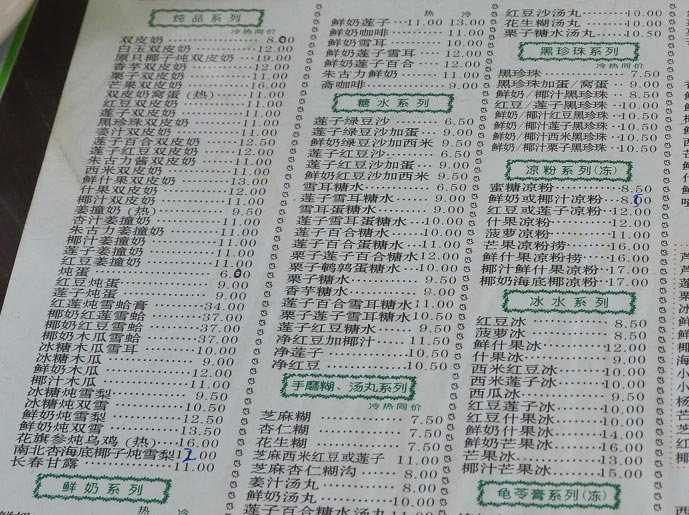 炖品系列
冷热同价
双皮奶 8.00
白玉双皮奶 12.00
原只椰子炖双皮奶 19.00
香芋双皮奶 12.00
栗子双皮奶 11.00
芒果双皮奶 16.00
双皮奶窝蛋(热) 11.00
红豆双皮奶 11.00
莲子双皮奶 11.00
黑珍珠双皮奶 11.00
姜汁双皮奶 11.00
莲子百合双皮奶 12.50
莲子红豆双皮奶 12.00
朱古力酱双皮奶 11.00
西米双皮奶 11.00
鲜什果双皮奶 13.00
什果双皮奶 12.00
椰汁双皮奶 11.00
姜撞奶(热) 9.50
杏汁姜撞奶 11.00
朱古力姜撞奶 11.00
椰汁姜撞奶 11.00
莲子姜撞奶 11.00
红豆姜撞奶 11.00
炖蛋 6.00
红豆炖蛋 9.00
莲子炖蛋 9.00
红莲炖雪蛤膏 34.00
椰奶红莲雪蛤 37.00
椰奶红豆雪蛤 37.00
椰奶木瓜雪蛤 37.00
冰糖木瓜雪耳 10.00
冰糖木瓜 9.00
鲜奶木瓜 12.00
椰汁木瓜 11.00
冰糖炖雪梨 9.50
冰糖炖双雪 10.50
鲜奶炖雪梨 12.50
鲜奶炖双雪 13.50
花旗参炖乌鸡(热) 16.00
南北杏海底椰子炖雪梨 12.00
长春甘露 11.00
鲜奶系列
热 冷
热 冷
鲜奶莲子 11.00 13.00
鲜奶咖啡 11.00
鲜奶雪耳 10.00
鲜奶莲子雪耳 12.00
鲜奶莲子百合 12.00
朱古力鲜奶 11.00
斋咖啡 9.00
糖水系列
莲子绿豆沙 6.50
莲子绿豆沙加蛋 9.00
鲜奶绿豆沙加西米 9.50
莲子红豆沙 6.50
莲子红豆沙加蛋 9.00
鲜奶红豆沙加西米 9.50
雪耳糖水 6.50
雪耳蛋糖水 9.00
莲子雪耳糖水 9.00
莲子雪耳蛋糖水 10.50
莲子百合糖水 10.00
莲子百合蛋糖水 11.00
栗子莲子百合糖水 12.00
栗子鹌鹑蛋糖水 10.00
栗子糖水 9.50
香芋糖水 9.00
莲子百合雪耳糖水 11.00
栗子莲子雪耳糖水 10.50
莲子红豆糖水 9.50
净红豆加椰汁 11.50
净莲子 10.50
净红豆 10.50
手磨糊、汤丸系列
冷热同价
芝麻糊 7.50
杏仁糊 7.50
花生糊 7.50
芝麻西米红豆或莲子 11.00
芝麻杏仁糊沟 8.00
姜汁汤丸 8.00
鲜奶汤丸 10.00
莲子百合糖水汤丸
红豆沙汤丸 10.00
花生糊汤丸 10.00
栗子糖水汤丸 10.50
黑珍珠系列
冷热同价
黑珍珠 7.50
黑珍珠加蛋/窝蛋 9.00
鲜奶/椰汁黑珍珠 8.50
红豆/莲子黑珍珠 10.50
鲜奶/椰汁红豆黑珍珠 10.50
鲜奶/椰汁莲子黑珍珠 10.50
鲜奶/椰汁西米黑珍珠 10.50
鲜奶/椰汁栗子黑珍珠 10.50
凉粉系列(冻)
蜜糖凉粉 8.50
鲜奶或椰汁凉粉
红豆或莲子凉粉 12.00
什果凉粉 11.00
菠萝凉粉 12.00
芒果凉粉捞 16.00
鲜什果凉粉捞 16.00
椰汁鲜什果凉粉 17.00
椰奶海底椰凉粉 17.00
冰水系列
红豆冰 8.50
菠萝冰 8.50
鲜什果冰 12.00
什果冰 9.00
西米红豆冰 10.00
西米莲子冰 10.00
西瓜冰 9.50
红豆莲子冰 10.00
红豆什果冰 10.00
鲜奶什果冰 14.00
鲜奶芒果冰 16.00
芒果冰 13.00
椰汁芒果冰 15.00
龟苓膏系列(冻)